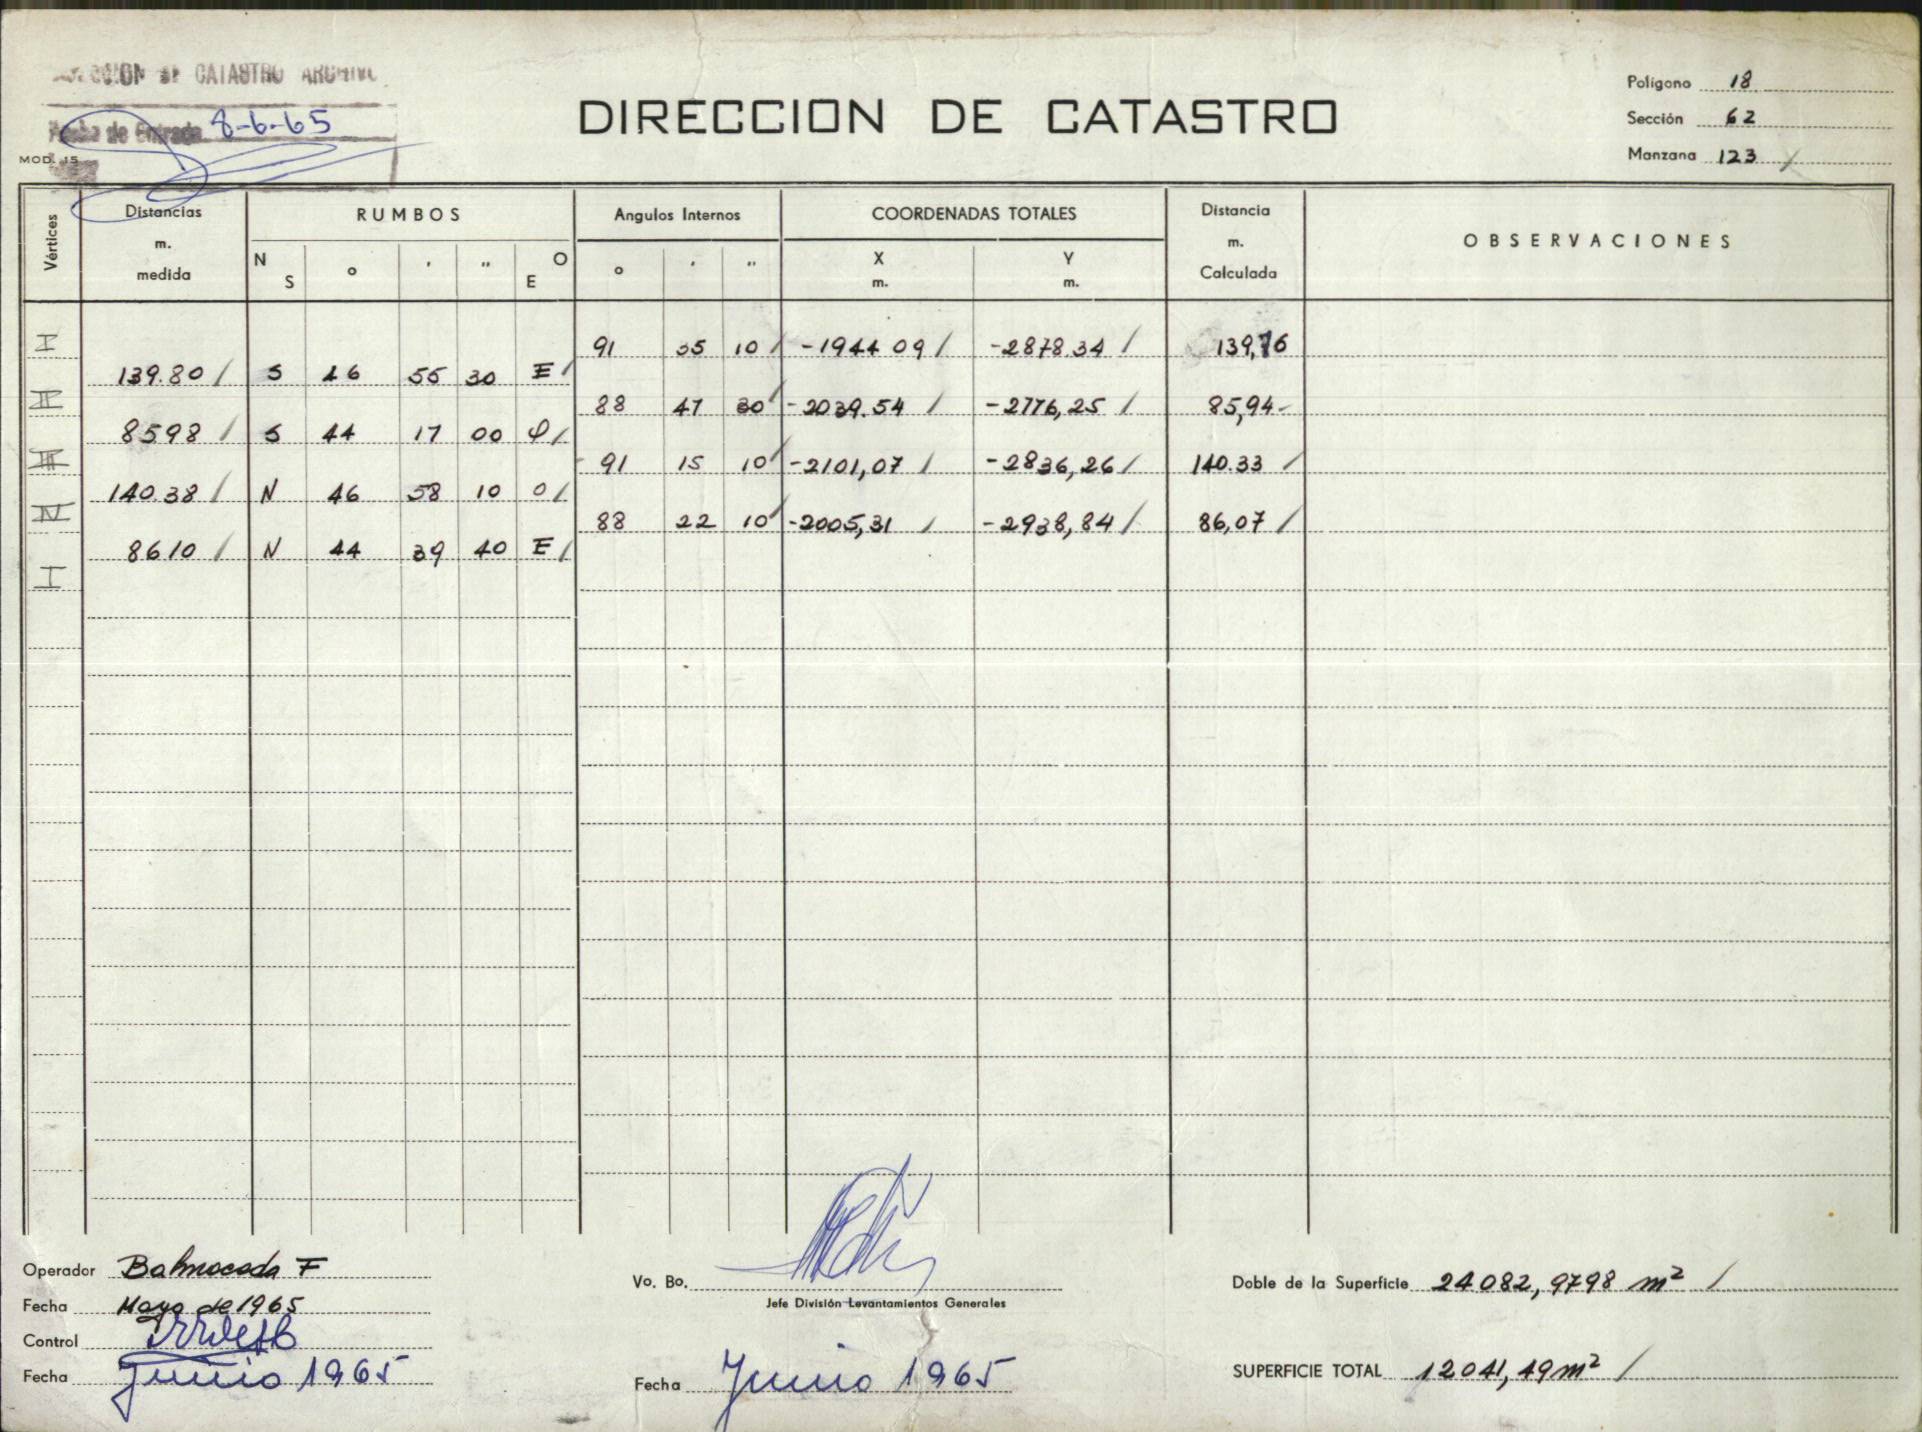 CATASTRO ARCHIVO
Fecha de Entrada 8-6-65
MOD. 15
DIRECCION DE CATASTRO
Polígono 18
Sección 62
Manzana 123 /
Vértices
Distancias m. medida
RUMBOS
N S o ' " O E
Angulos Internos
o ' "
COORDENADAS TOTALES
X m.
Y m.
Distancia m. Calculada
OBSERVACIONES
I 91 35 10 / -1944 09 / -2878.34 / 139,76
139.80 / S 46 55 30 E /
II 88 47 30 / -2039.54 / -2776,25 / 85,94-
8598 / S 44 17 00 O /
III 91 15 10 / -2101,07 / -2836,26 / 140.33 /
140.38 / N 46 58 10 O /
IV 88 22 10 / -2005,31 / -2938,84 / 86,07 /
8610 / N 44 39 40 E /
I
Operador Balmaceda F
Fecha Mayo de 1965
Control
Fecha Junio 1965
Vo. Bo.
Jefe División Levantamientos Generales
Fecha Junio 1965
Doble de la Superficie 24082,9798 m² /
SUPERFICIE TOTAL 12041,49 m² /